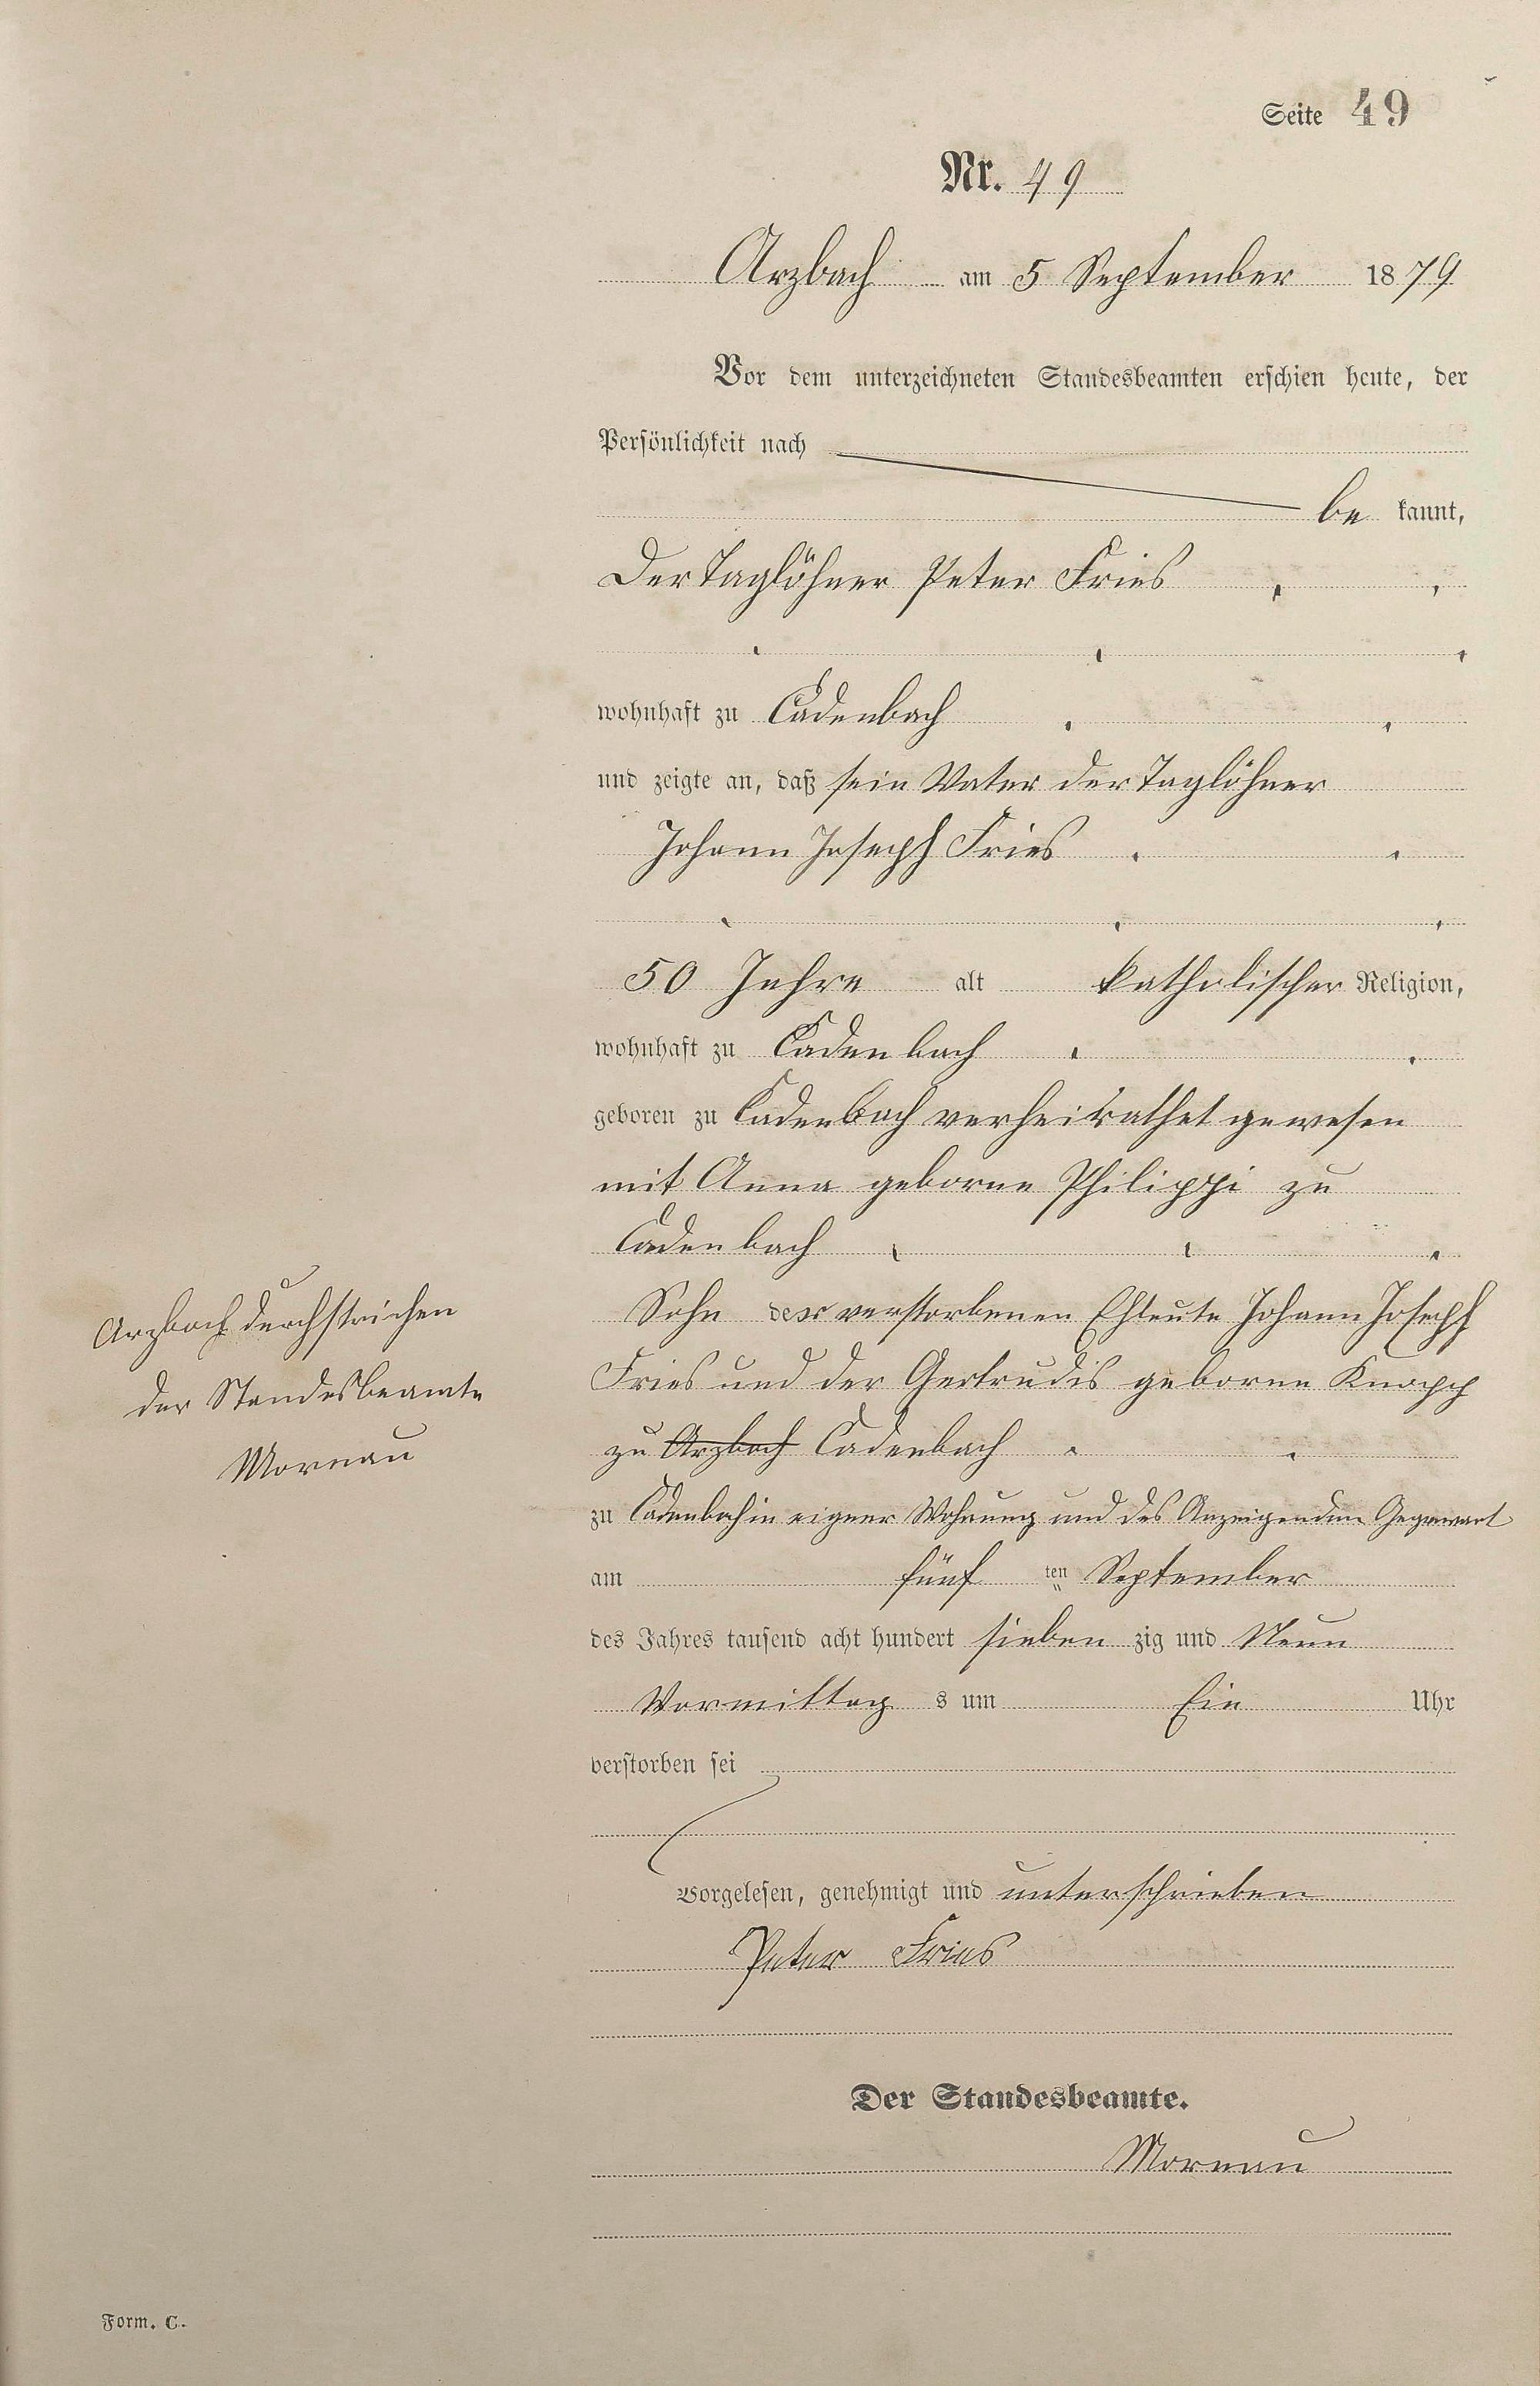 Seite 49
Nr. 49
Arzbach am 5 September 1879
Vor dem unterzeichneten Standesbeamten erschien heute, der
Persönlichkeit nach
be kannt,
Der Taglöhner Peter Fries
wohnhaft zu Cadenbach
und zeigte an, daß sein Vater der Taglöhner
Johann Joseph Fries
50 Jahre alt katholischer Religion,
wohnhaft zu Cadenbach
geboren zu Cadenbach verheirathet gewesen
mit Anna geborne Philippi zu
Cadenbach
Sohn der verstorbenen Ehleute Johann Joseph
Fries und der Gertrudis geborne Knopp
zu Arzbach Cadenbach
Arzbach durchstrichen
der Standesbeamte
Mornau
zu Cadenbach in eigner Wohnung und des Anzeigenden Gegenwart
am fünf ten September
des Jahres tausend acht hundert sieben zig und Neun
Vormittag s um Ein Uhr
verstorben sei
Vorgelesen, genehmigt und unterschrieben
Peter Fries
Der Standesbeamte.
Mornau
Form. C.